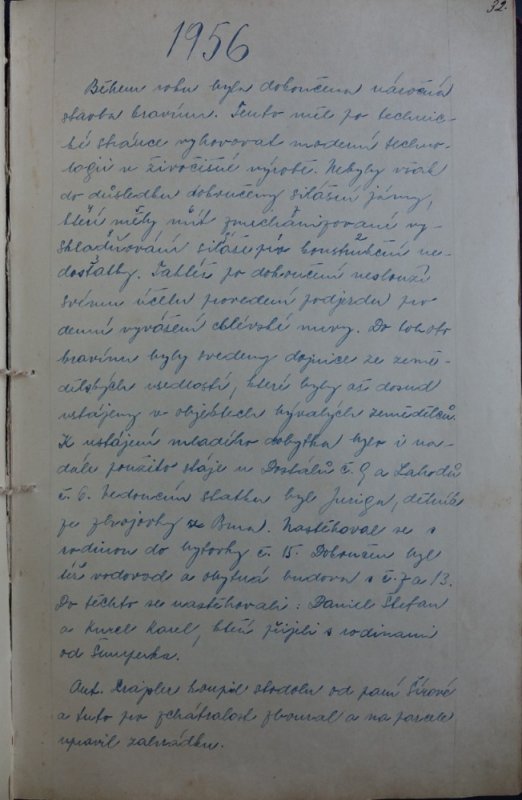 32.
1956
Během roku byla dokončena náročná
stavba kravína. Tento měl po technic-
ké stránce vyhovovat moderní techno-
logii v živočišné výrobě. Nebyly však
do důsledku dokončeny silážní jámy,
které měly mít zmechanizované vy-
skladňování siláže pro konstrukční ne-
dostatky. Taktéž po dokončení neslouží
svému účelu provedení podjezdu pro
denní vyvážení chlévské mrvy. Do tohoto
kravínu byly svedeny dojnice ze země-
dělských usedlostí, které byly až dosud
ustájeny v objektech bývalých zemědělců.
K ustájení mladého dobytka bylo i na-
dále použito stáje u Dostálů č. 9 a Lahodů
č. 6. Vedoucím statku byl Juriga, dělník
ze zbrojovky z Brna. Nastěhoval se s
rodinou do bytovky č. 15. Dokončen byl
též vodovod a obytná budova s č. 7 a 13.
Do těchto se nastěhovali: Daniel Štefan
a Kurel Karel, kteří přijeli s rodinami
od Šumperka.
Ant. Krajpler koupil stodolu od paní Šírové
a tuto pro zchátralost zboural a na parcele
upravil zahrádku.